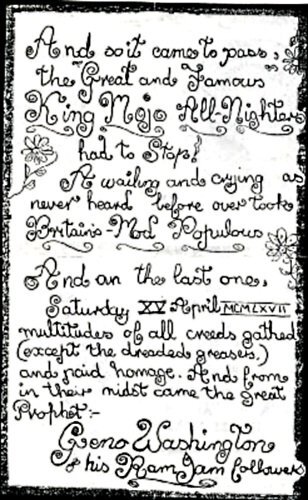 And so it came to pass,
the "Great and Famous
King Mojo All-Nighters
had to Stop!
A wailing and crying as
never heard before over took
Britains-Mod Populous
And on the last one,
Saturday XV April MCMLXVII
multitudes of all creeds gathed
(except the dreaded greasers,)
and paid homage. And from
in their midst came the great
Prophet:-
Geno Washington
& his Ram Jam followers